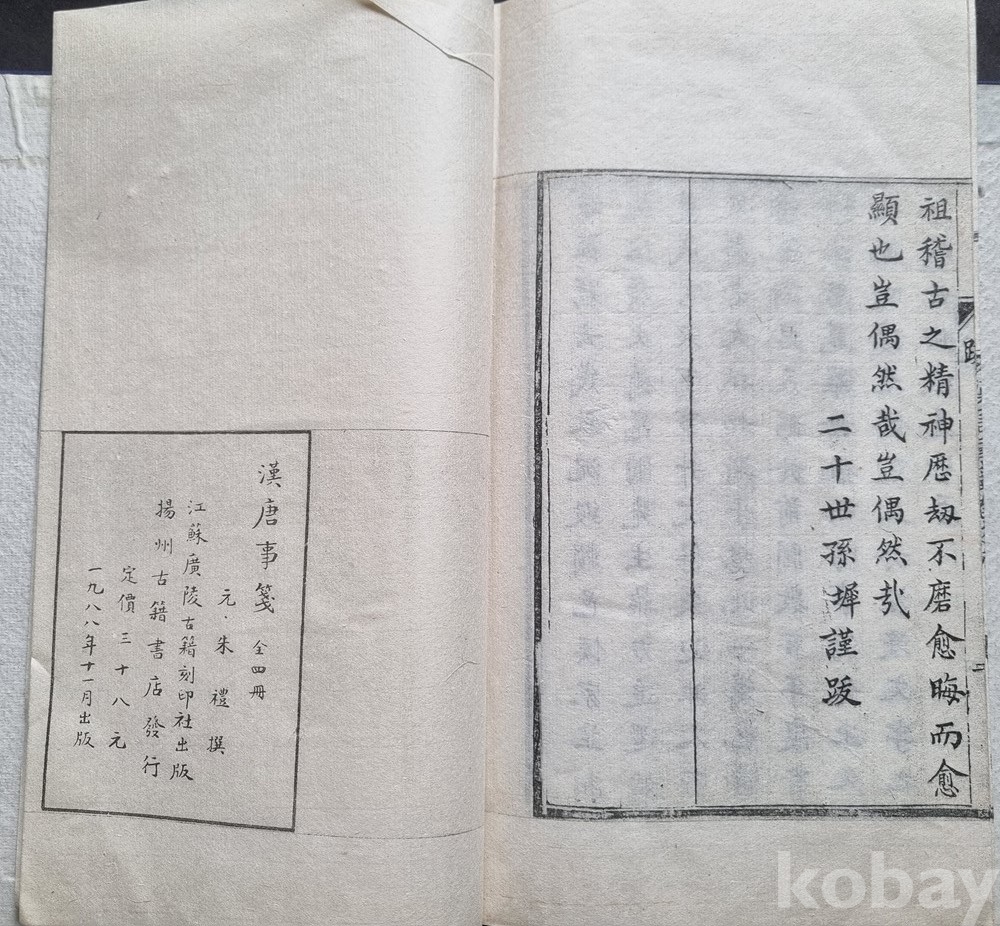 祖稽古之精神歷刼不磨愈晦而愈
顯也豈偶然哉豈偶然哉
二十世孫墀謹跋
跋
漢唐事箋 全四冊
元·朱禮撰
江蘇廣陵古籍刻印社出版
揚州古籍書店發行
定價三十八元
一九八八年十一月出版
kobay